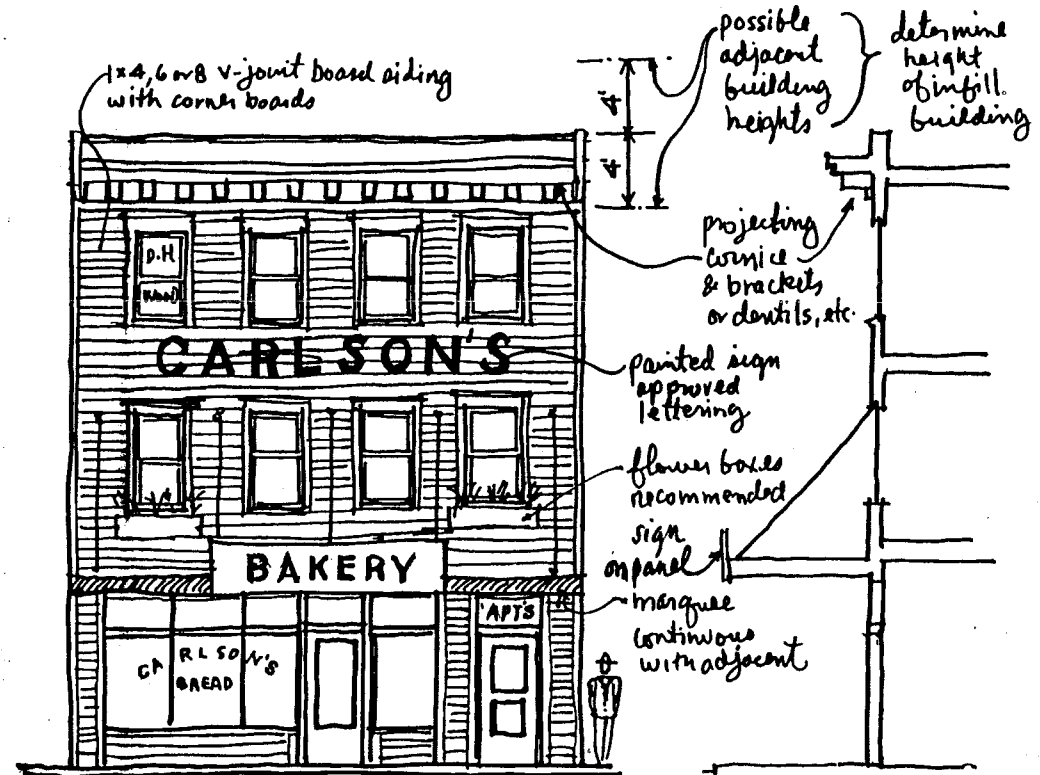 1x4, 6 or 8 v-joint board siding
with corner boards
4'
4'
possible
adjacent
building
heights
determine
height
of infill
building
projecting
cornice
& brackets
or dentils, etc.
D.H
WOOD
CARLSON'S
painted sign
approved
lettering
flower boxes
recommended
sign
on panel
BAKERY
marquee
continuous
with adjacent
'APT'S
CARLSON'S
BREAD